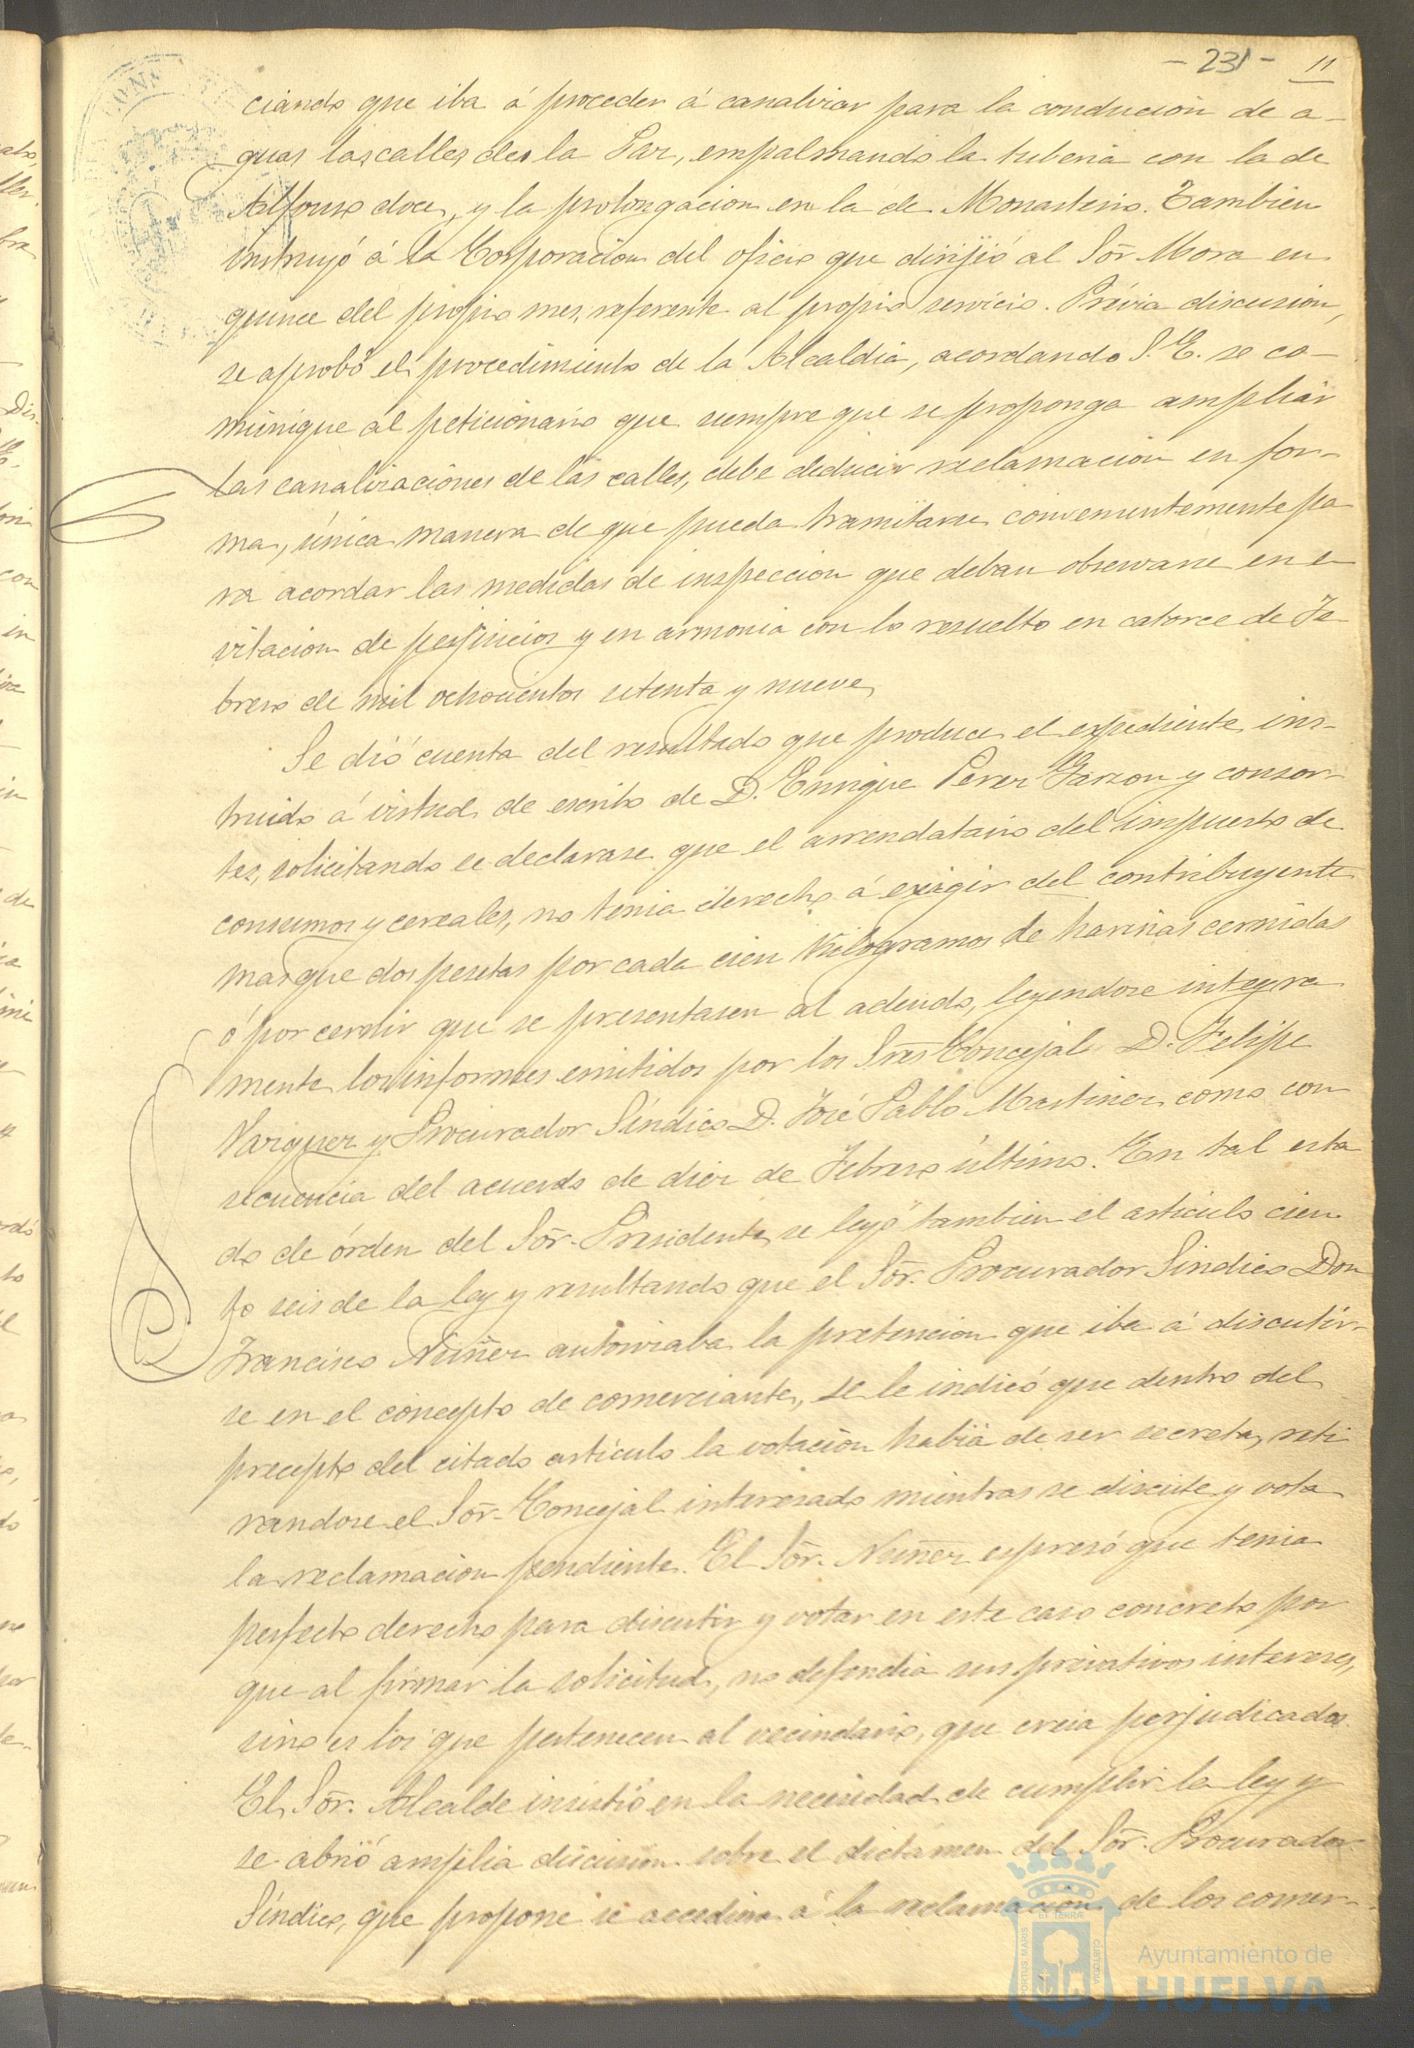 - 231 - 11
ciando que iba á proceder á canalizar para la conducion de a-
guas las calles de la Paz, empalmando la tuberia con la de
Alfonso doce, y la prolongacion en la de Monasterio. Tambien
instruyó á la Corporacion del oficio que dirijió al Sor. Mora en
quince del propio mes, referente al propio servicio. Prévia discusion,
se aprobó el procedimiento de la Alcaldia, acordando S. E. se co-
munique al peticionario que siempre que se proponga ampliar
las canalizaciones de las calles, debe deducir reclamacion en for-
ma, única manera de que pueda tramitarse convenientemente pa
ra acordar las medidas de inspeccion que deban observarse en e
vitacion de perjuicios y en armonia con lo resuelto en catorce de Fe
brero de mil ochocientos setenta y nueve,
Se dió cuenta del resultado que produce el expediente ins-
truido á virtud de escrito de D. Enrique Perez Garzon y consor-
tes, solicitando se declarase que el arrendatario del impuesto de
consumos y cereales, no tenia derecho á exigir del contribuyente
mas que dos pesetas por cada cien Kilogramos de harinas cernidas
ó por cernir que se presentasen al adeudo, leyendose integra
mente los informes emitidos por los Sres Concejal D. Felipe
Vazquez y Procurador Síndico D. José Pablo Martinez como con
secuencia del acuerdo de diez de Febrero último. En tal esta
do de órden del Sor. Presidente, se leyó tambien el articulo cien
to seis de la ley y resultando que el Sor. Procurador Sindico Don
Francisco Nuñez autorizaba la pretencion que iba á discutir-
se en el concepto de comerciante, se le indicó que dentro del
precepto del citado artículo la votacion habia de ser secreta, reti
randose el Sor. Concejal interesado mientras se discute y vota
la reclamacion pendiente. El Sor. Nuñez espresó que tenia
perfecto derecho para discutir y votar en este caso concreto por
que al firmar la solicitud, no defendia sus privativos intereses,
sino es los que pertenecen al vecindario, que creia perjudicados.
El Sor. Alcalde insistió en la necesidad de cumplir la ley y
se abrió amplia discusion sobre el dictamen del Sor. Procurador
Síndico, que propone se accediera á la reclamacion de los comer-
PORTUS MARIS ET TERRAE CUSTODIA
Ayuntamiento de
HUELVA